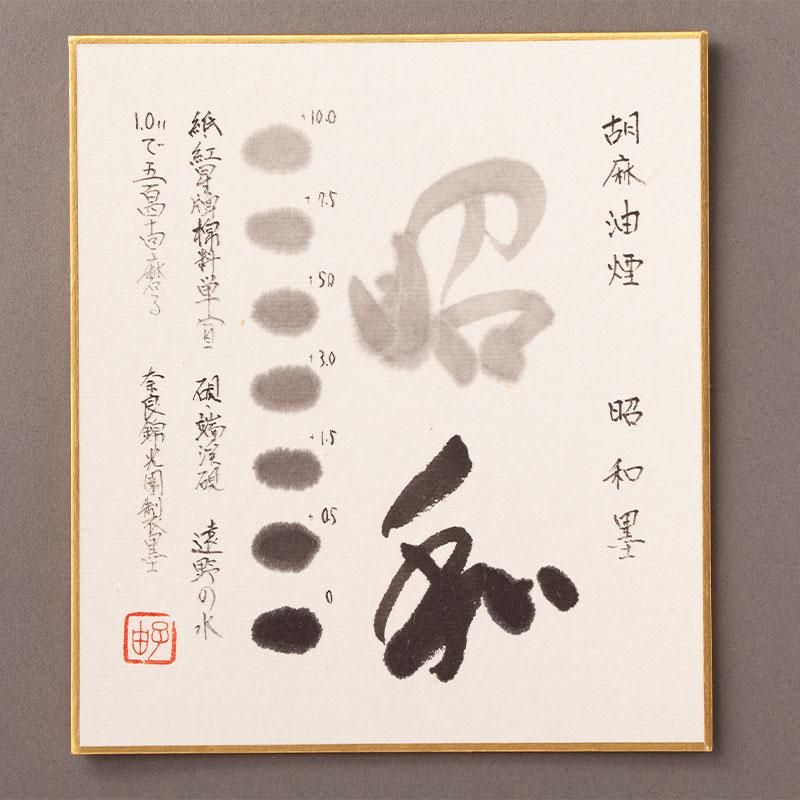 胡麻油煙 昭和墨
昭和
+10.0
+7.5
+5.0
+3.0
+1.5
+0.5
0
紙紅星牌棉料単宣 硯端渓硯 遠野の水
1.0ccで五百四十回磨る 奈良錦光園制墨
由子